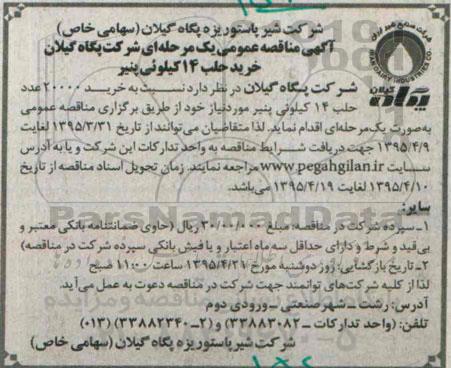 شرکت صنایع شیر ایران
IRAN DAIRY INDUSTRIES CO.
پگاه گیلان
شرکت شیر پاستوریزه پگاه گیلان (سهامی خاص)
آگهی مناقصه عمومی یک مرحله‌ای شرکت پگاه گیلان
خرید حلب ۱۴ کیلوئی پنیر
شرکت پگاه گیلان در نظر دارد نسبت به خرید ۲۰۰۰۰ عدد
حلب ۱۴ کیلوئی پنیر موردنیاز خود از طریق برگزاری مناقصه عمومی
به‌صورت یک‌مرحله‌ای اقدام نماید. لذا متقاضیان می‌توانند از تاریخ ۱۳۹۵/۳/۳۱ لغایت
۱۳۹۵/۴/۹ جهت دریافت شرایط مناقصه به واحد تدارکات این شرکت و یا به آدرس
سایت www.pegahgilan.ir مراجعه نمایند. زمان تحویل اسناد مناقصه از تاریخ
۱۳۹۵/۴/۱۰ لغایت ۱۳۹۵/۴/۱۹ می‌باشد.
سایر:
۱- سپرده شرکت در مناقصه: مبلغ ۳۰/۰۰۰/۰۰۰ ریال (حاوی ضمانتنامه بانکی معتبر و
بی‌قید و شرط و دارای حداقل سه ماه اعتبار و یا فیش بانکی سپرده شرکت در مناقصه)
۲- تاریخ بازگشایی: روز دوشنبه مورخ ۱۳۹۵/۴/۲۱ ساعت ۱۱:۰۰ صبح
لذا از کلیه شرکت‌های توانمند جهت شرکت در مناقصه دعوت به عمل می‌آید.
آدرس: رشت - شهر صنعتی - ورودی دوم
تلفن: (واحد تدارکات - ۳۳۸۸۳۰۸۲) و (۲-۳۳۸۸۲۳۴۰) (۰۱۳)
شرکت شیر پاستوریزه پگاه گیلان (سهامی خاص)
ParsNamadData